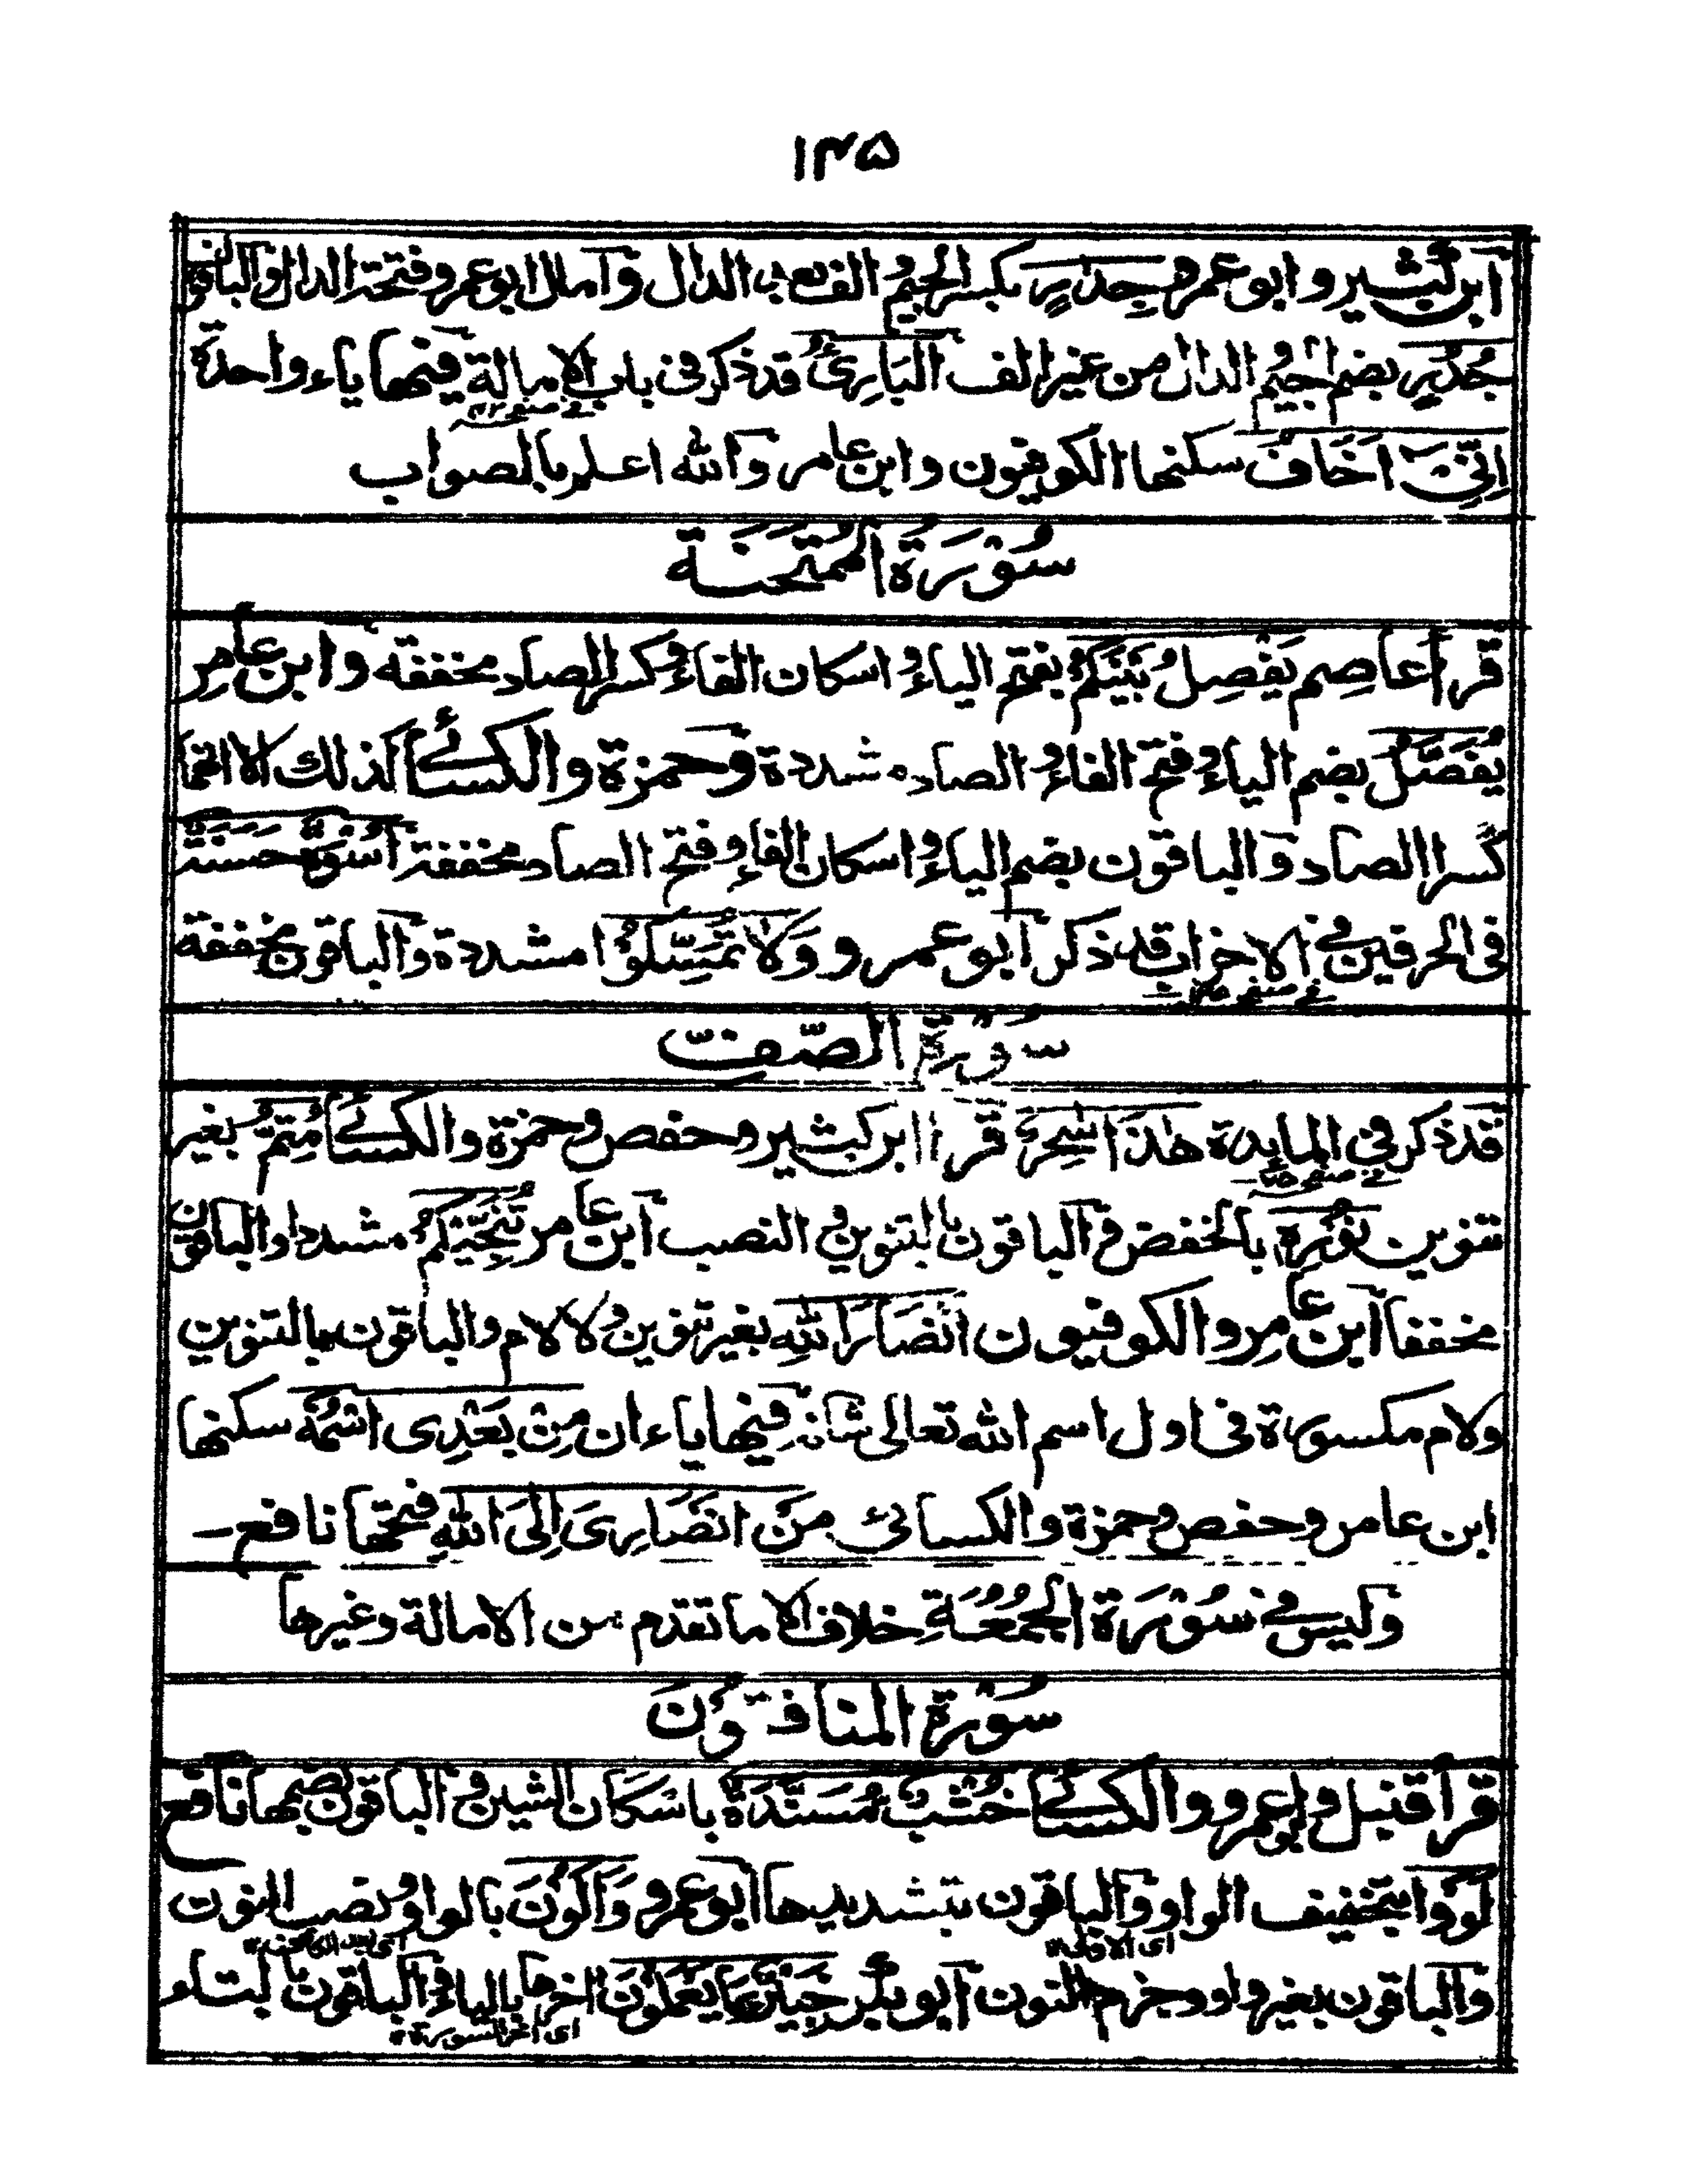 ۱۴۵
ابن كثير وابو عمرو جِدٰرٍ بكسر الجيم والف بعد الدال وامال ابو عمرو فتحة الدال والباقون
جُدُرٍ بضم الجيم والدال من غير الف البَارِئُ قد ذكر فى باب الامالة فيها ياء واحدة
اِنِّىَ اَخَافُ سكنها الكوفيون وابن عامر والله اعلم بالصواب
سُوْرَةُ المُمْتَحَنَة
قرأ عاصم يَفْصِلُ بَيْنَكُمْ بفتح الياء واسكان الفاء وكسر الصاد مخففة وابن عامر
يُفَصَّلُ بضم الياء وفتح الفاء والصاد مشددة وحمزة والكسائى كذلك الا انهما
كسرا الصاد والباقون بضم الياء واسكان الفاء وفتح الصاد مخففة اُسْوَةٌ حَسَنَةٌ
فى الحرفين فى الاحزاب قد ذكر ابو عمرو وَلَا تُمَسِّكُوْا مشددة والباقون مخففة
سُوْرَةُ الصّفِّ
قد ذكر فى المايدة هٰذَا سٰحِرٌ قرأ ابن كثير وحفص وحمزة والكسائى مُتِمُّ بغير
تنوين نُوْرِهٖ بالخفض والباقون بالتنوين والنصب ابن عامر تُنَجِّيْكُمْ مشددا والباقون
مخففا ابن عامر والكوفيون اَنْصَارَ اللهِ بغير تنوين ولا لام والباقون بالتنوين
ولام مكسورة فى اول اسم الله تعالى شانه فيها ياءان مِنْۢ بَعْدِى اسْمُهٗ سكنها
ابن عامر وحفص وحمزة والكسائى مَنْ اَنْصَارِىَ اِلَى اللهِ فتحها نافع ـ
وليس فى سُوْرَة الجُمُعَةِ خلاف الا ما تقدم من الامالة وغيرها
سُوْرَةُ المنافقُونَ
قرأ قنبل وابو عمرو والكسائى خُشْبٌ مُسَنَّدَةٌ باسكان الشين والباقون بضمها نافع
لَوَوْا بتخفيف الواو والباقون بتشديدها ابو عمرو وَاَكُوْنَ بالواو ونصب النون
والباقون بغير واو وجزم النون ابو بكر خَبِيْرٌ بِمَا يَعْمَلُوْنَ اخرها بالياء والباقون بالتاء
اى اخر السورة ۱۲